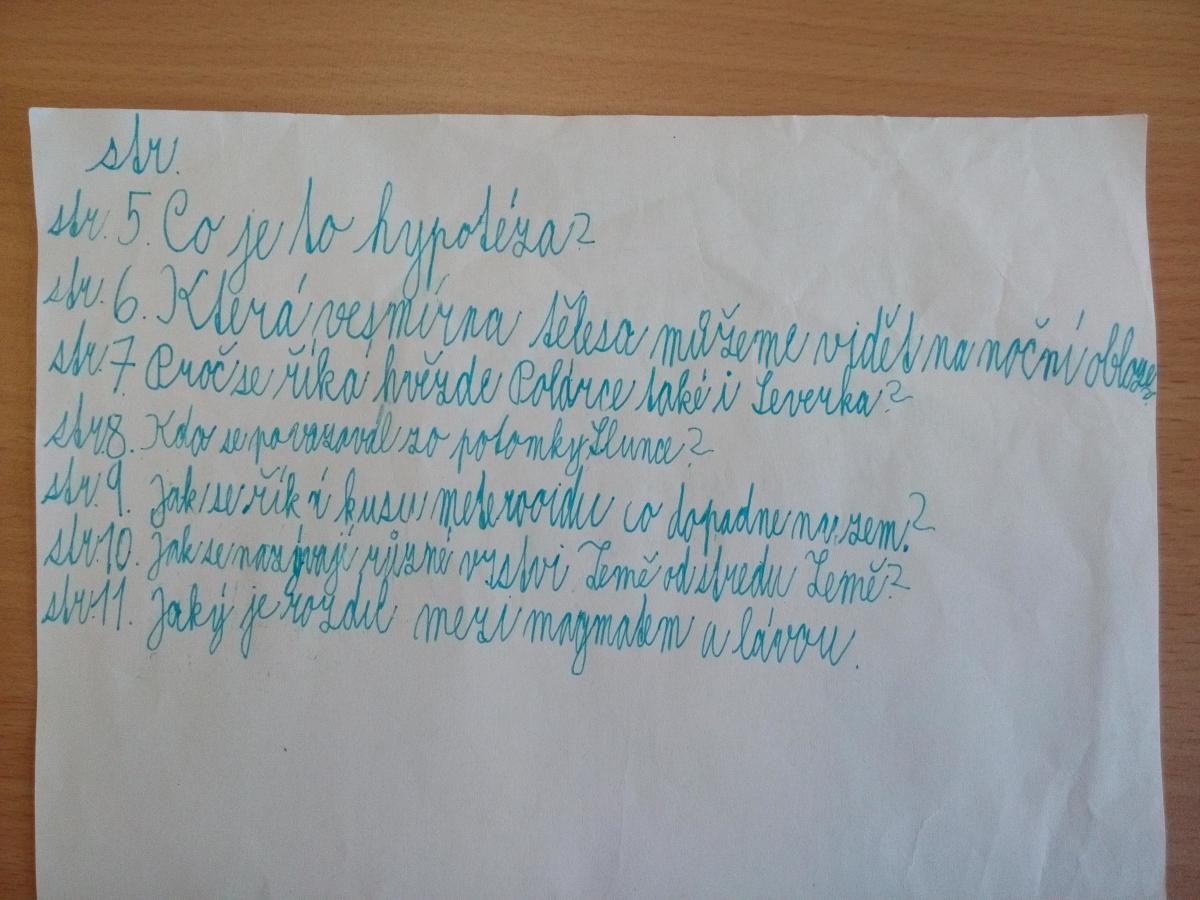 str.
str. 5. Co je to hypotéza?
str. 6. Která vesmírna tělesa můžeme vidět na noční obloze?
str. 7 Proč se říká hvězde Polárce také i Severka?
str. 8. Kdo se povazoval za potomky Slunce?
str. 9. Jak se říká kusu meterooidu co dopadne na zem?
str. 10. Jak se nazývají různé vrstvi Země od středu Země?
str. 11. Jaký je rozdíl mezi magmatem a lávou.